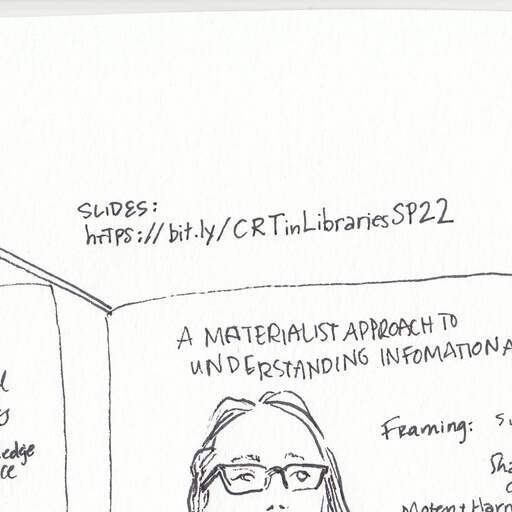 SLIDES:
https://bit.ly/CRTinLibrariesSP22
A MATERIALIST APPROACH TO
UNDERSTANDING INFOMATIONA
Framing:
edge